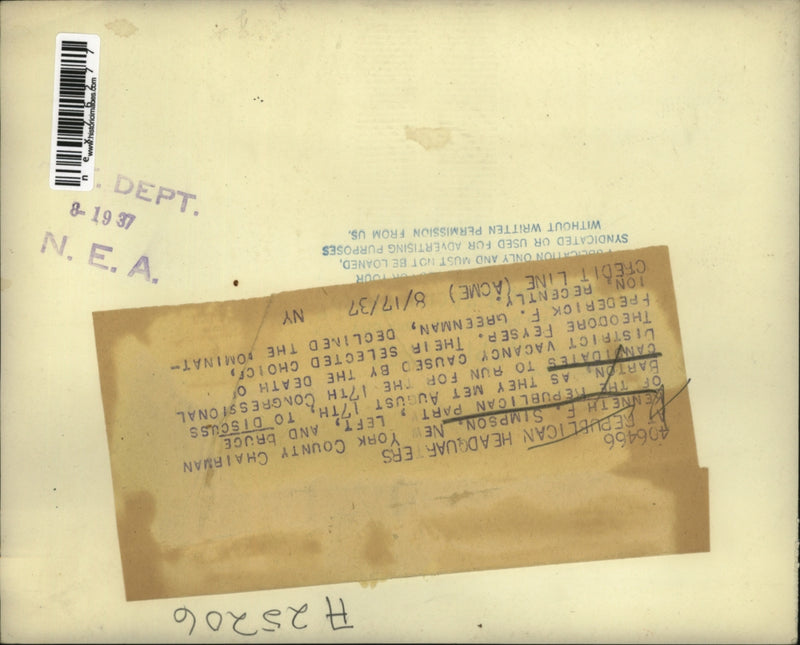 www.historicimages.com
DEPT.
8-19 37
N. E. A.
PUBLICATION ONLY AND MUST NOT BE LOANED,
SYNDICATED OR USED FOR ADVERTISING PURPOSES
WITHOUT WRITTEN PERMISSION FROM US.
406466
REPUBLICAN HEADQUARTERS
KENNETH F. SIMPSON, NEW YORK COUNTY CHAIRMAN
OF THE REPUBLICAN PART , LEFT, AND BRUCE
BARTON, AS THEY MET AUGUST 17TH, TO DISCUSS
CANDIDATES TO RUN FOR THE 17TH CONGRESSIONAL
DISTRICT VACANCY CAUSED BY THE DEATH OF
THEODORE PEYSER. THEIR SELECTED CHOICE,
FREDERICK F. GREENMAN, DECLINED THE NOMINAT-
ION, RECENTLY.
CREDIT LINE (ACME) 8/17/37 NY
A25206